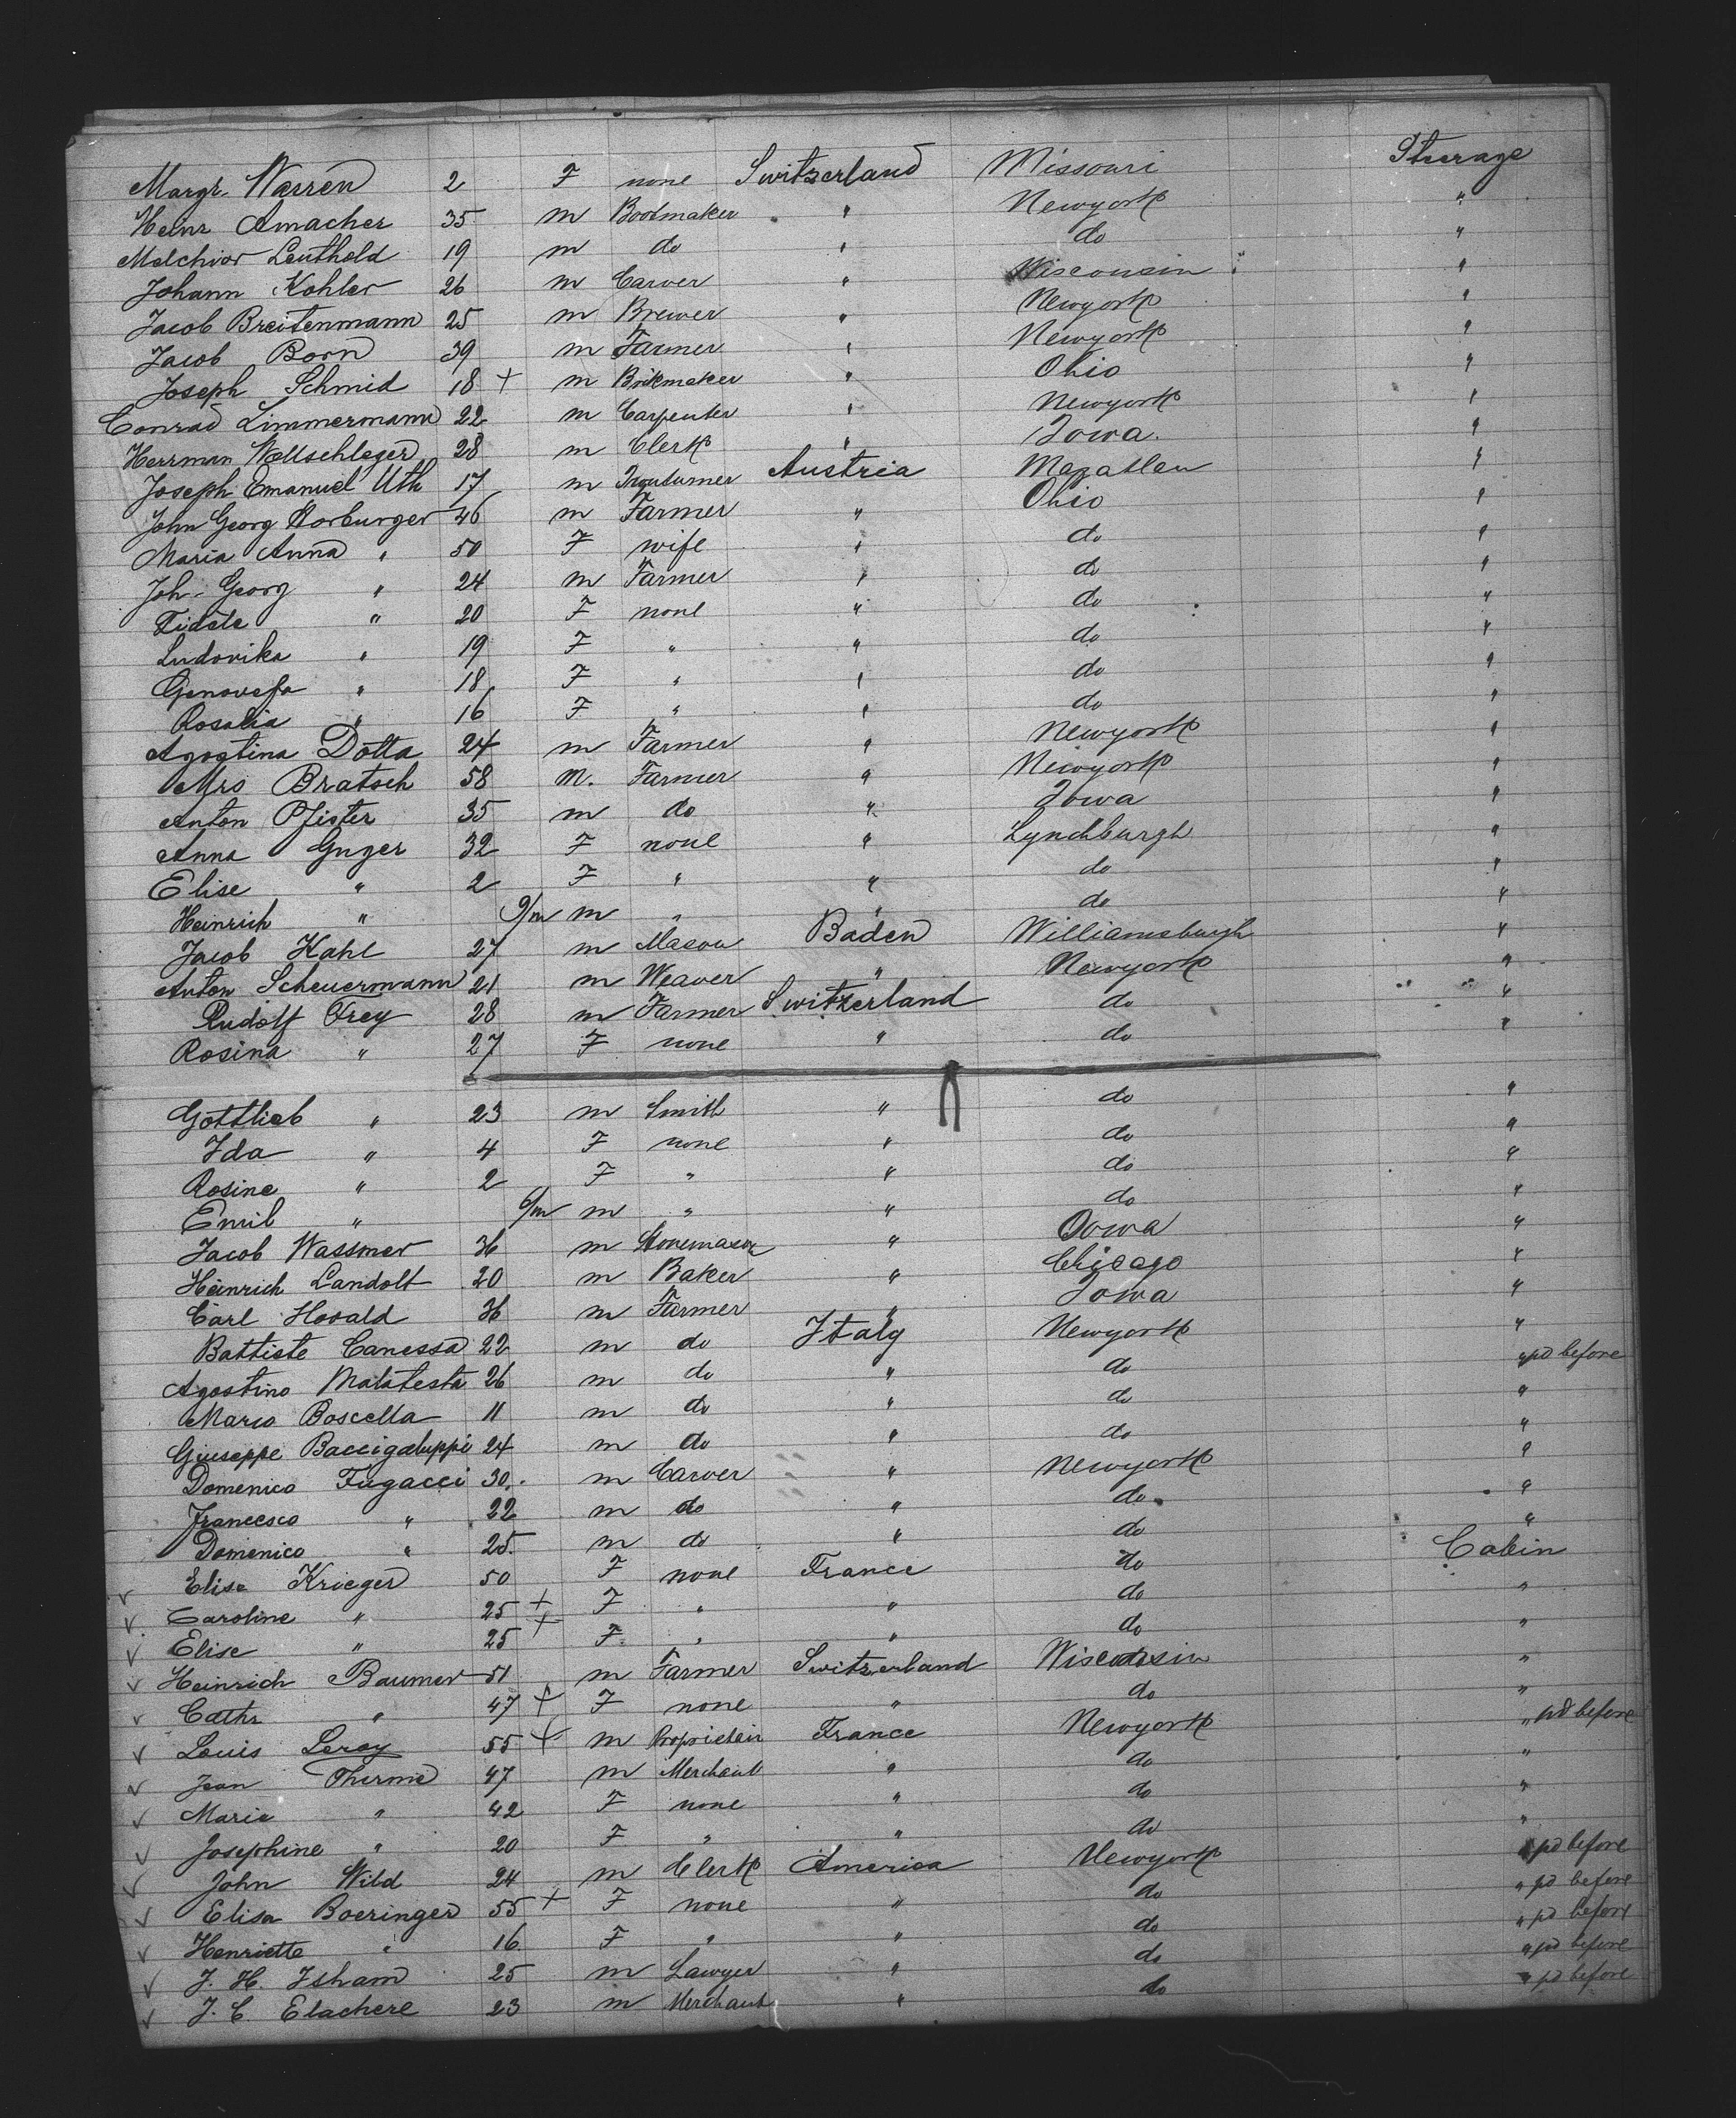 Margr. Warren 2 F none Switzerland Missouri Steerage
Heinr Amacher 35 m Bootmaker " Newyork "
Melchior Leuthold 19 m do " do "
Johann Kohler 26 m Carver " Wisconsin "
Jacob Breitenmann 25 m Brewer " Newyork "
Jacob Born 39 m Farmer " Newyork "
Joseph Schmid 18 + m Brikmaker " Ohio "
Conrad Zimmermann 22 m Carpenter " Newyork "
Herrman Wollschleger 28 m Clerk " Iowa. "
Joseph Emanuel Uth 17 m Austria Mazatlan "
John Georg 46 m Farmer " Ohio "
Maria Anna " 50 F wife " do "
Joh. Georg " 24 m Farmer " do "
Fidele " 20 F none " do "
Ludovika " 19 F " " do "
Genovefa " 18 F " " do "
Rosalia " 16 F " " do "
Agostina Dotta 24 m Farmer " Newyork "
Mrs Bratsch 58 m. Farmer " Newyork "
Anton Pfister 35 m do " Iowa "
Anna Guger 32 F none " Lynchburgh "
Elise " 2 F " " do "
Heinrich " 9/m m " " do "
Jacob Kahl 27 m Mason Baden Williamsburgh "
Anton Scheuermann 21 m Weaver " Newyork "
Rudolf Frey 28 m Farmer Switzerland do "
Rosina " 27 F none " do "
Gottlieb " 23 m Smith " do "
Ida " 4 F none " do "
Rosine " 2 F " " do "
Emil " 6/m m " " do "
Jacob Wassmer 36 m Stonemason " Iowa "
Heinrich Landolt 20 m Baker " Chicago "
Carl Hovald 36 m Farmer " Iowa "
Battiste Canessa 22 m do Italy Newyork "
Agostino Malatesta 26 m do " do " pd before
Marco Boscella 11 m do " do "
Giuseppe Baccigaluppi 24 m do " do "
Domenico Fugacci 30. m Carver " Newyork "
Francesco " 22 m do " do "
Domenico " 25. m do " do "
Elise Krieger 50 F none France do Cabin
Caroline " 25 + F " " do "
Elise " 25 + F " " do "
Heinrich Baumer 51 m Farmer Switzerland Wisconsin "
Cathr " 47 + F none " do "
Louis Leroy 55 + m Proprietair France Newyork " pd before
Jean Therme 47 m Merchant " do "
Marie " 42 F none " do "
Josephine " 20 F " " do "
John Wild 24 m Clerk America Newyork " pd before
Elisa Boeringer 55 + F none " do " pd before
Henriette " 16 F " " do " pd before
J. H. Isham 25 m Lawyer " do " pd before
J. C. Elachere 23 m Merchant " do " pd before